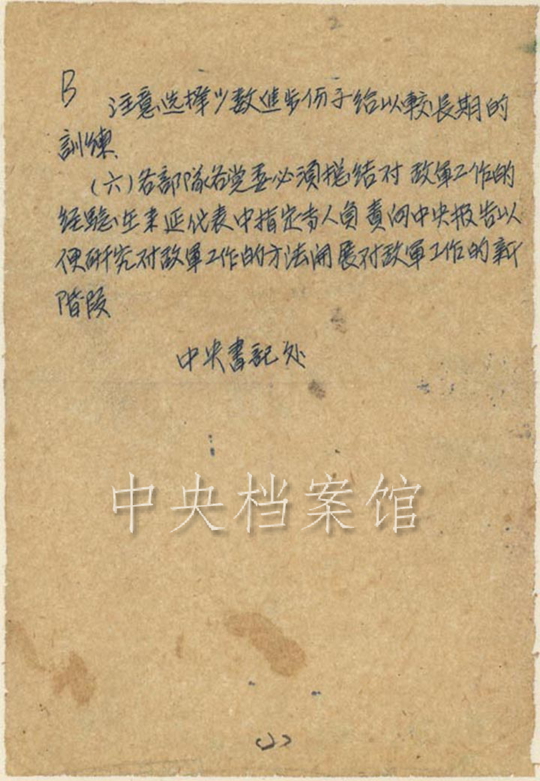 B
注意选择少数進步份子给以較長期的
訓練
(六)各部隊各党委必须總结对敌軍工作的
经驗在来延代表中指定专人負責向中央报告以
便研究对敌軍工作的方法開展对敌軍工作的新
階段
中央書記处
中央档案馆